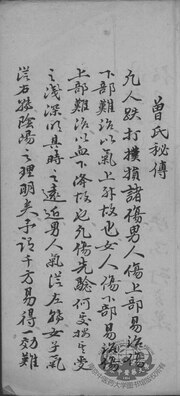 曾氏秘傳
凡人跌打撲損諸傷男人傷上部易治傷
下部難治以氣上升故也女人傷下部易治傷
上部難治以血下降故也凡傷先驗何處按其受
之淺深明其時之遠近男人氣從左轉女子氣
從右轉陰陽之理明矣予訪千方易得効難